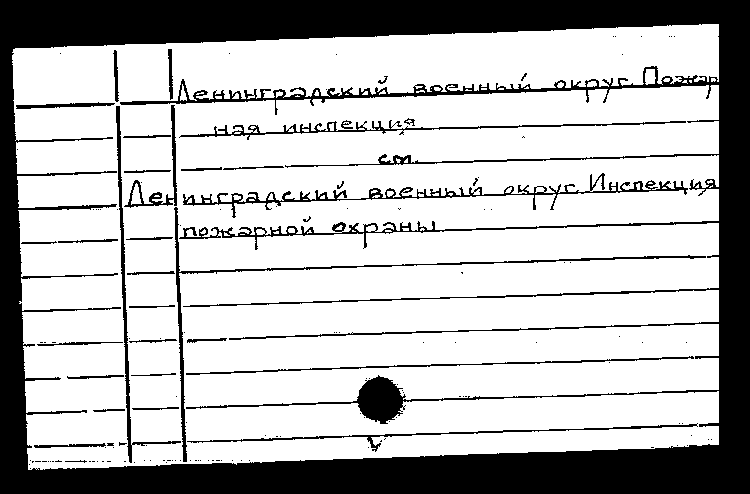 Ленинградский военный округ. Пожар
ная инспекция
см.
Ленинградский военный округ. Инспекция
пожарной охраны